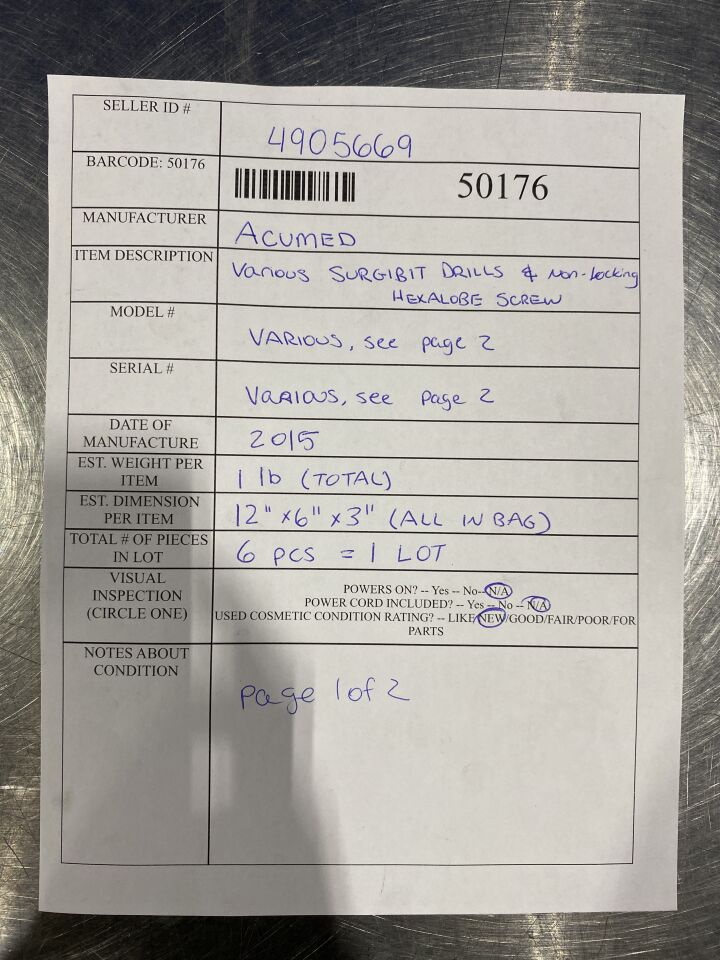 SELLER ID #
4905669
BARCODE: 50176
50176
MANUFACTURER
ACUMED
ITEM DESCRIPTION
Various SURGIBIT DRILLS & Non-Locking
HEXALOBE SCREW
MODEL #
VARIOUS, see page 2
SERIAL #
VARIOUS, see page 2
DATE OF
MANUFACTURE
2015
EST. WEIGHT PER
ITEM
1 lb (TOTAL)
EST. DIMENSION
PER ITEM
12" x 6" x 3" (ALL IN BAG)
TOTAL # OF PIECES
IN LOT
6 PCS = 1 LOT
VISUAL
INSPECTION
(CIRCLE ONE)
POWERS ON? -- Yes -- No--N/A
POWER CORD INCLUDED? -- Yes -- No -- N/A
USED COSMETIC CONDITION RATING? -- LIKE NEW/GOOD/FAIR/POOR/FOR
PARTS
NOTES ABOUT
CONDITION
page 1 of 2